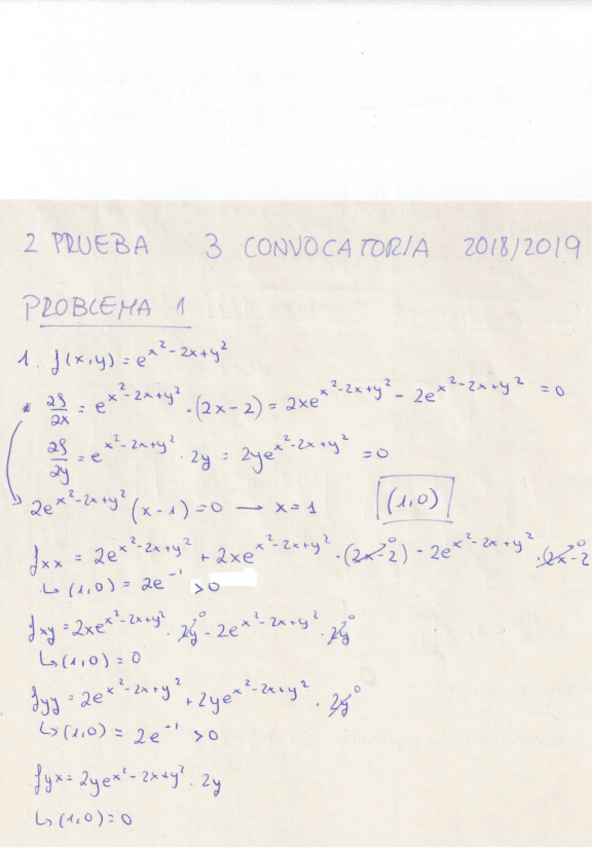 2 PRUEBA 3 CONVOCATORIA 2018/2019
PROBLEMA 1
1. f(x,y) = e^{x²-2x+y²}
* ∂f/∂x = e^{x²-2x+y²} · (2x-2) = 2xe^{x²-2x+y²} - 2e^{x²-2x+y²} = 0
∂f/∂y = e^{x²-2x+y²} · 2y = 2ye^{x²-2x+y²} = 0
→ 2e^{x²-2x+y²} (x-1) = 0 → x = 1 (1,0)
fxx = 2e^{x²-2x+y²} + 2xe^{x²-2x+y²} · (2x-2)⁰ - 2e^{x²-2x+y²} · (2x-2⁰
↳ (1,0) = 2e⁻¹ >0
fxy = 2xe^{x²-2x+y²} · 2y⁰ - 2e^{x²-2x+y²} · 2y⁰
↳ (1,0) = 0
fyy = 2e^{x²-2x+y²} + 2ye^{x²-2x+y²} · 2y⁰
↳ (1,0) = 2e⁻¹ >0
fyx = 2yex²-2x+y² · 2y
↳ (1,0) = 0